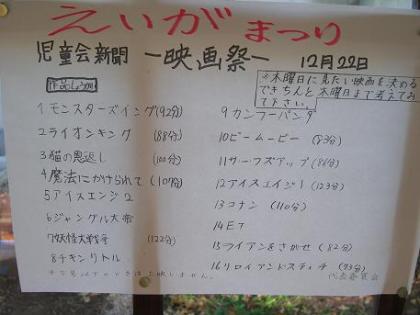 えいがまつり
児童会新聞 ー映画祭ー 12月22日
※木曜日に見たい映画を決める
のできちんと木曜日まで考えてみ
て下さい。
作品しょうかい
1モンスターズイング(92分)
2ライオンキング (88分)
3猫の恩返し (100分)
4魔法にかけられて (107分)
5アイスエンジ2
6ジャングル大帝
7妖怪大戦争 (122分)
8チキンリトル
9カンフーパンダ
10ビームービー (83分)
11サーフズアップ (86分)
12アイスエイジ1 (123分)
13コナン (110分)
14ET
15ライアンをさがせ (82分)
16リロイアンドスティチ (93分)
代表委員会